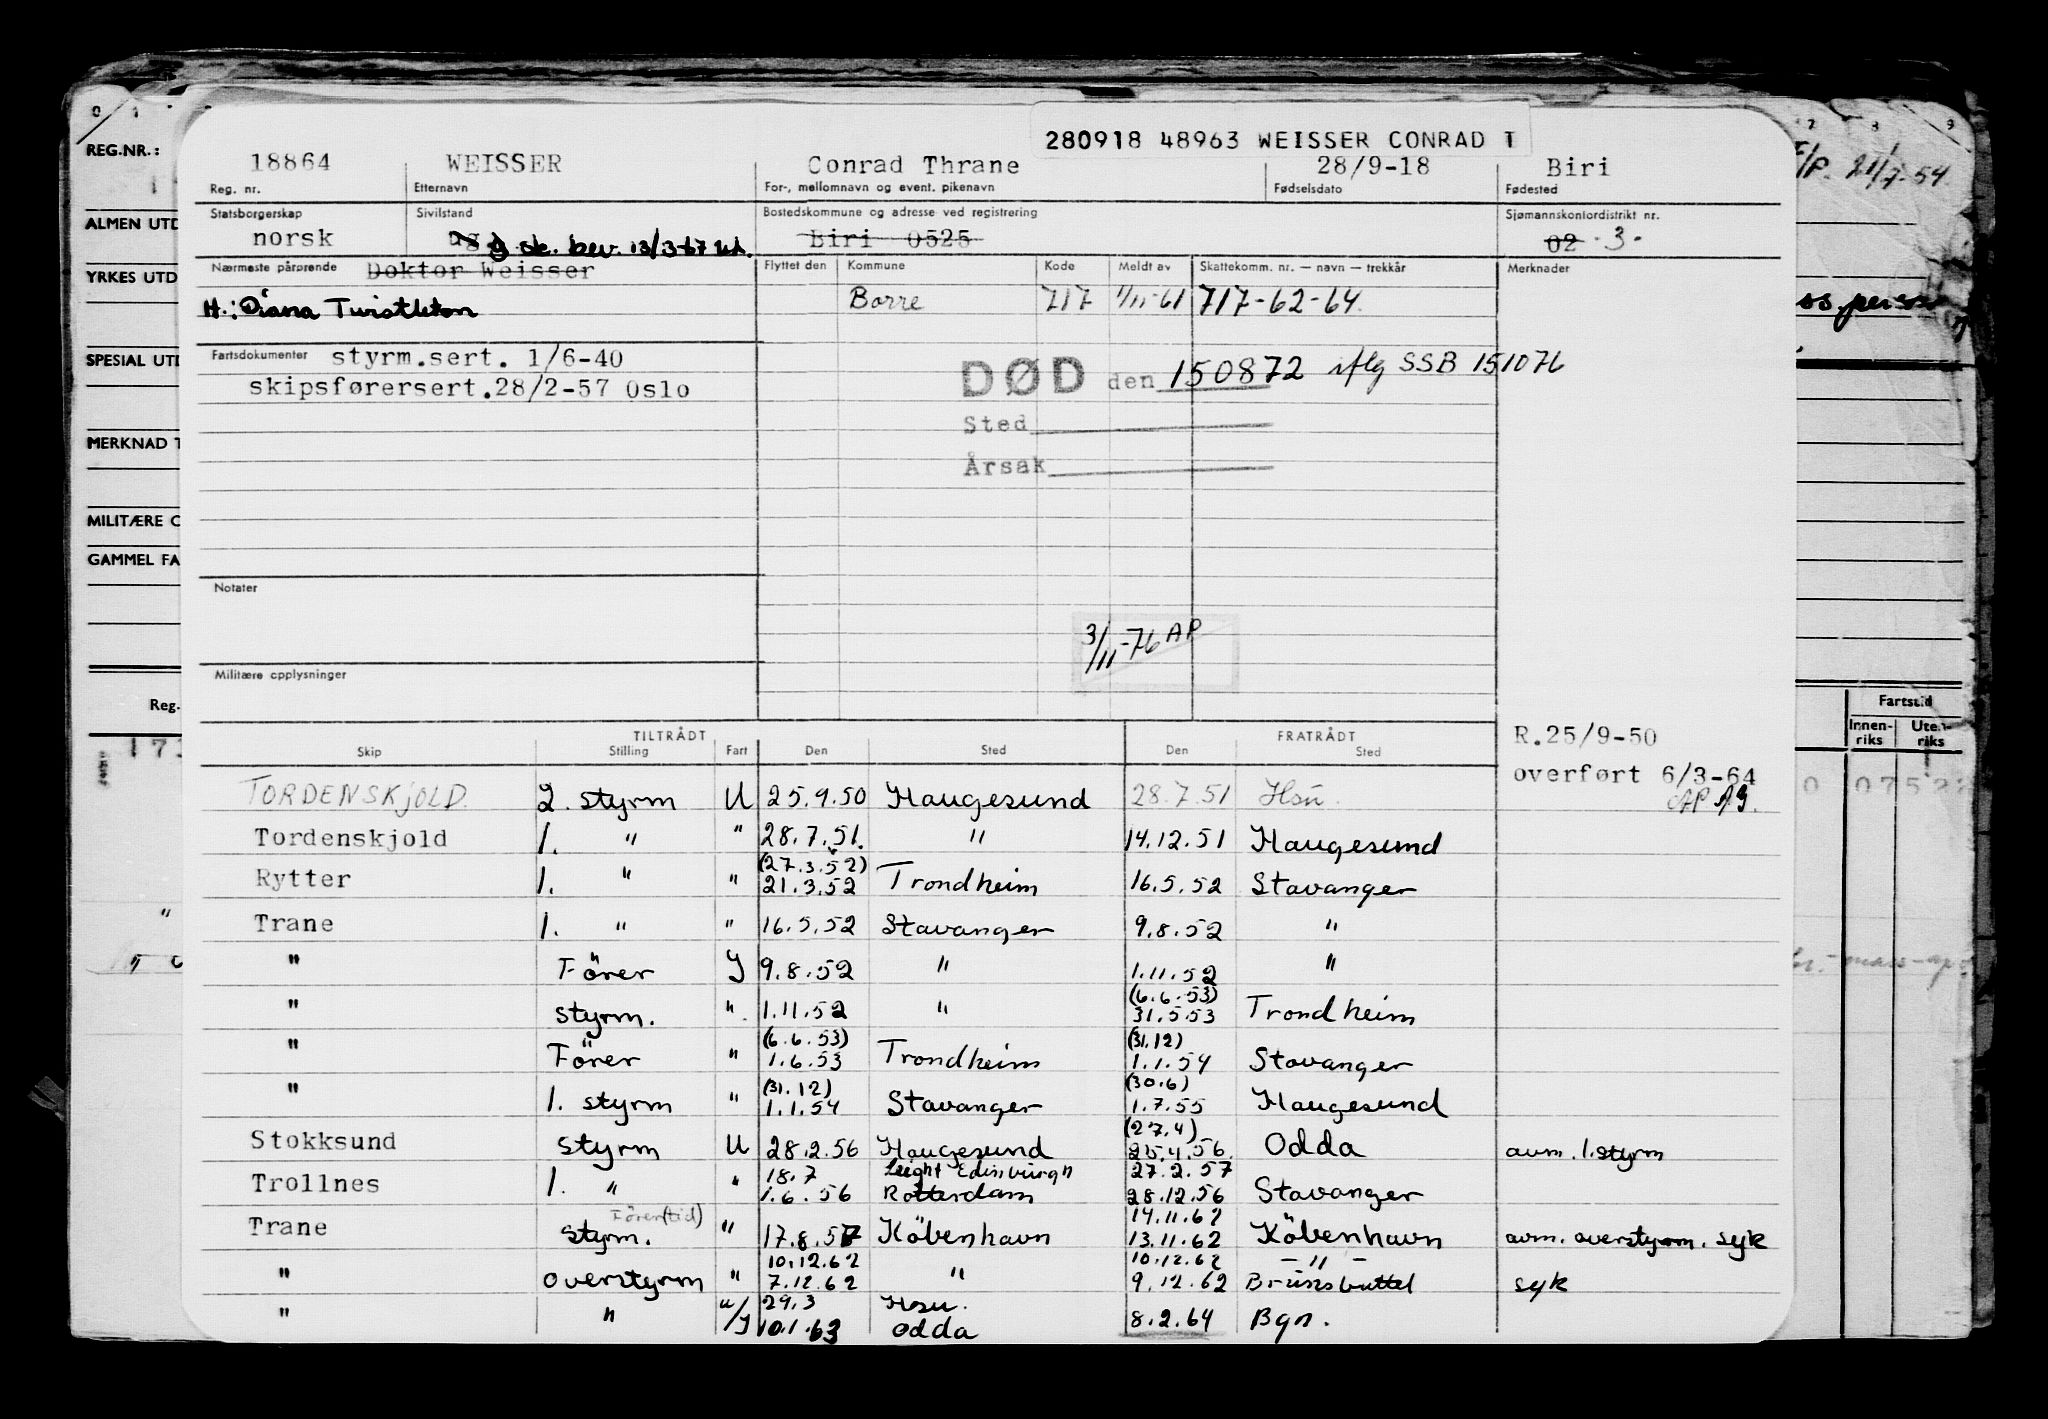 280918 48963 WEISSER CONRAD T
18864 WEISSER Conrad Thrane 28/9-18 Biri
Reg. nr. Etternavn For-, mellomnavn og event. pikenavn Fødselsdato Fødested
Statsborgerskap Sivilstand Bostedskommune og adresse ved registrering Sjømannskontordistrikt nr.
norsk ug g sk. bev. 13/3-67 Biri 0525 02 · 3 -
Nærmeste pårørende Doktor Weisser Flyttet den Kommune Kode Meldt av Skattekomm. nr. — navn — trekkår Merknader
H.: Diana Twistleton Borre 717 1/11-61 717-62-64.
Fartsdokumenter styrm.sert. 1/6-40
skipsførersert.28/2-57 Oslo
DØD den 150872 iflg SSB 151076
Sted
Årsak
Notater
3/11-76 AP
Militære opplysninger
TILTRÅDT FRATRÅDT
Skip Stilling Fart Den Sted Den Sted
R.25/9-50
overført 6/3-64
AP
TORDENSKJOLD 2. styrm U 25.9.50 Haugesund 28.7.51 Hsu.
Tordenskjold 1. " " 28.7.51. " 14.12.51 Haugesund
(27.3.52)
Rytter 1. " " 21.3.52 Trondheim 16.5.52 Stavanger
Trane 1. " " 16.5.52 Stavanger 9.8.52 "
" Förer I 9.8.52 " 1.11.52 "
(6.6.53)
" styrm. " 1.11.52 " 31.5.53 Trondheim
(6.6.53) (31.12)
" Förer " 1.6.53 Trondheim 1.1.54 Stavanger
(31.12) (30.6)
" 1. styrm " 1.1.54 Stavanger 1.7.55 Haugesund
(27.4)
Stokksund styrm U 28.2.56 Haugesund 25.4.56. Odda avm. 1. styrm
18.7 Leight Edinburgh 27.2.57
Trollnes 1. " " 1.6.56 Rotterdam 28.12.56 Stavanger
Förer(tid) 14.11.62
Trane styrm. " 17.8.57 Köbenhavn 13.11.62 Köbenhavn avm. overstyrm. syk
10.12.62 10.12.62 — " —
" overstyrm " 7.12.62 " 9.12.62 Brunsbuttel syk
29.3 Hsu.
" " U/I 10.1.63 Odda 8.2.64 Bgn.
REG.NR.:
ALMEN UTD
YRKES UTD
SPESIAL UTD
MERKNAD T
MILITÆRE O
GAMMEL FA
Reg.
Fartstid
Innen-riks Uten-riks